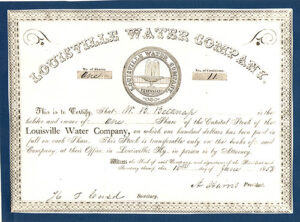 LOUISVILLE WATER COMPANY.
No. of Shares
One
No. of Certificate
11
LOUISVILLE WATER COMPANY
This is to Certify That W. B. Belknap is the
holder and owner of One Share of the Capital Stock of the
Louisville Water Company, on which one hundred dollars has been paid in
full on each Share. This Stock is transferable only on the books of said
Company, at their Office in Louisville Ky. in person or by Attorney
Witness the Seal of said Company and signatures of the President and
Secretary thereof this day of June
President
Secretary